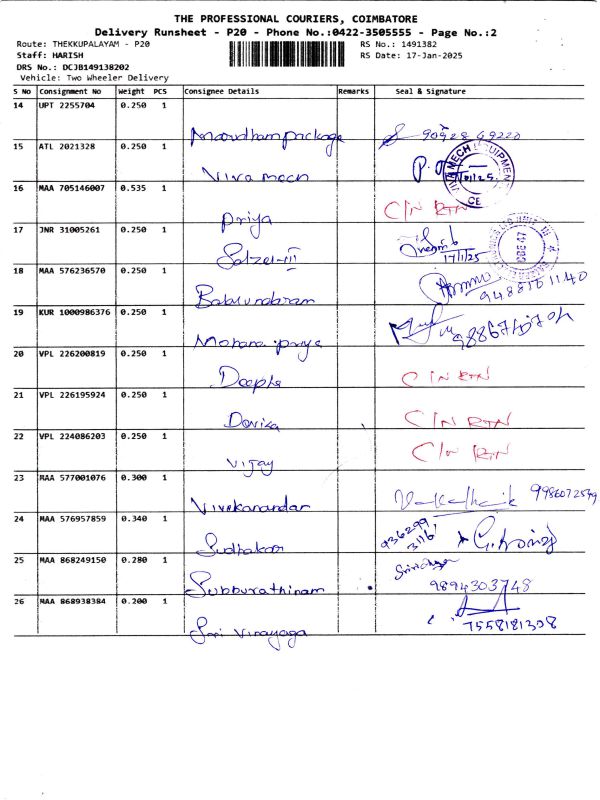 THE PROFESSIONAL COURIERS, COIMBATORE
Delivery Runsheet - P20 - Phone No.:0422-3505555 - Page No.:2
Route: THEKKUPALAYAM - P20 RS No.: 1491382
Staff: HARISH RS Date: 17-Jan-2025
DRS No.: DCJB149138202
Vehicle: Two Wheeler Delivery
S No Consignment No Weight PCS Consignee Details Remarks Seal & Signature
14 UPT 2255704 0.250 1
15 ATL 2021328 0.250 1
Viva mech
16 MAA 705146007 0.535 1
Priya C/N RTN
17 JNR 31005261 0.250 1
17/1/25
18 MAA 576236570 0.250 1
19 KUR 1000986376 0.250 1
Mohana priya
20 VPL 226200819 0.250 1
Deepha C/N RTN
21 VPL 226195924 0.250 1
Devika C/N RTN
22 VPL 224086203 0.250 1
Vijay C/N RTN
23 MAA 577001076 0.300 1
Vivekanandan
24 MAA 576957859 0.340 1
Sudhakar
25 MAA 868249150 0.280 1
Subburathinam 9894303748
26 MAA 868938384 0.200 1
Sri Vinayaga 7558181308